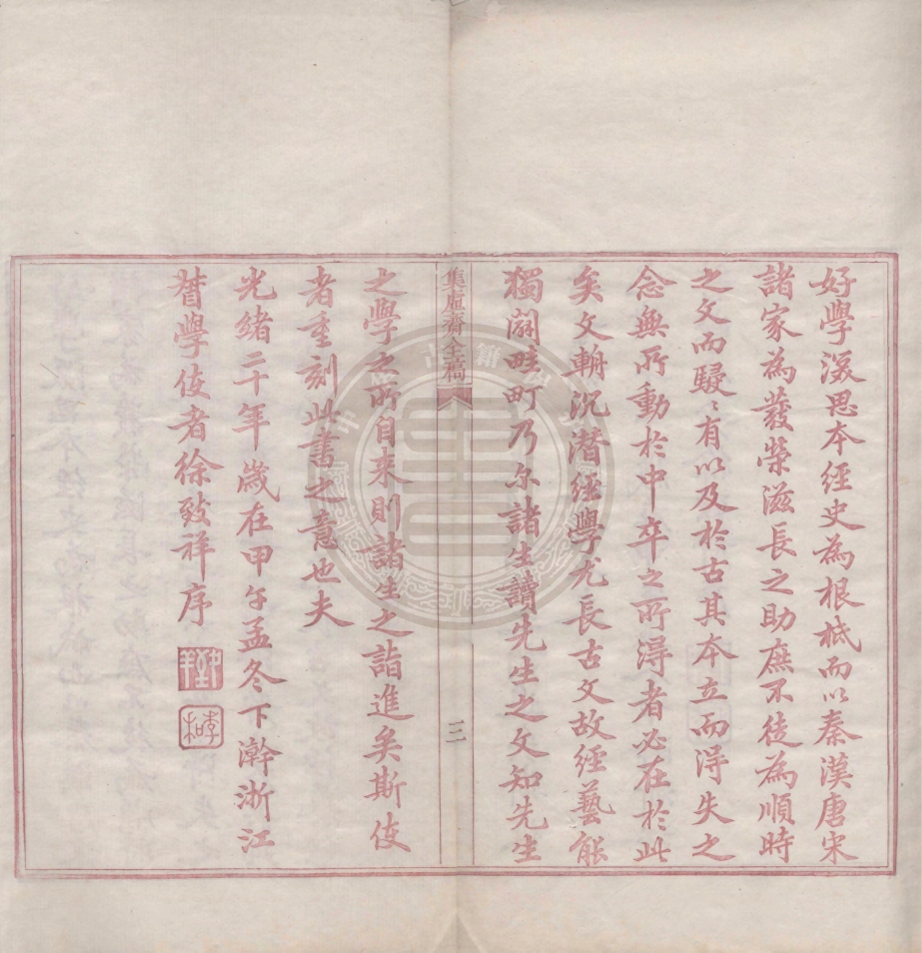 好學深思本經史為根柢而以秦漢唐宋
諸家為發榮滋長之助庶不徒為順時
之文而駸〻有以及於古其本立而淂失之
念無所動於中卒之所淂者必在於此
矣文輈沉潜經學尤長古文故經藝能
獨闢畦町乃尔諸生讀先生之文知先生
集虛齋全稿
三
之學之所自来則諸生之詣進矣斯使
者重刻此書之意也夫
光緒二十年歲在甲午孟冬下澣浙江
督學使者徐致祥序